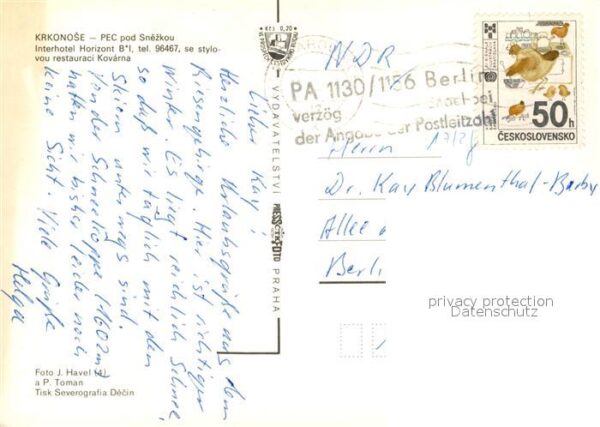 KRKONOŠE — PEC pod Sněžkou
Interhotel Horizont B*I, tel. 96467, se stylo-
vou restaurací Kovárna
Lieber Kay!
Herzliche Urlaubsgrüße aus dem
Riesengebirge. Hier ist richtiger
Winter. Es liegt reichlich Schnee,
so daß wir täglich mit den
Skiern unterwegs sind.
Von der Schneekoppe (1602m)
hatten wir bisher leider noch
keine Sicht. Viele Grüße
Helga
Foto J. Havel (4)
a P. Toman
Tisk Severografia Děčín
Kčs 0,20
VYDAVATELSTVÍ PRESSFOTO PRAHA
NDR
PA 1130/1156 Berlin
verzög
der Angabe der Postleitzahl
50h
ČESKOSLOVENSKO
Herrn
Dr. Kay Blumenthal-Barby
Allee
Berli
privacy protection
Datenschutz